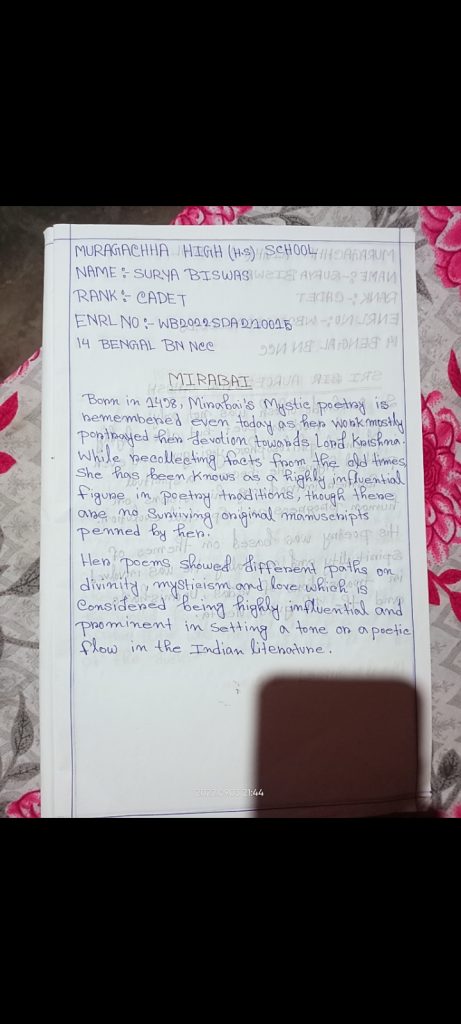 MURAGACHHA HIGH (HS) SCHOOL
NAME :- SURYA BISWAS
RANK :- CADET
ENRL NO :- WB2022SDA210015
14 BENGAL BN NCC
MIRABAI
Born in 1498, Mirabai's Mystic poetry is
remembered even today as her work mostly
portrayed her devotion towards Lord Krishna.
While recollecting facts from the old times,
She has been knows as a highly influential
figure in poetry traditions, though there
are no surviving original manuscripts
penned by her.
Her poems showed different paths on
divinity, mysticism and love which is
Considered being highly influential and
prominent in setting a tone or a poetic
flow in the Indian literature.
2022.09.03 21:44